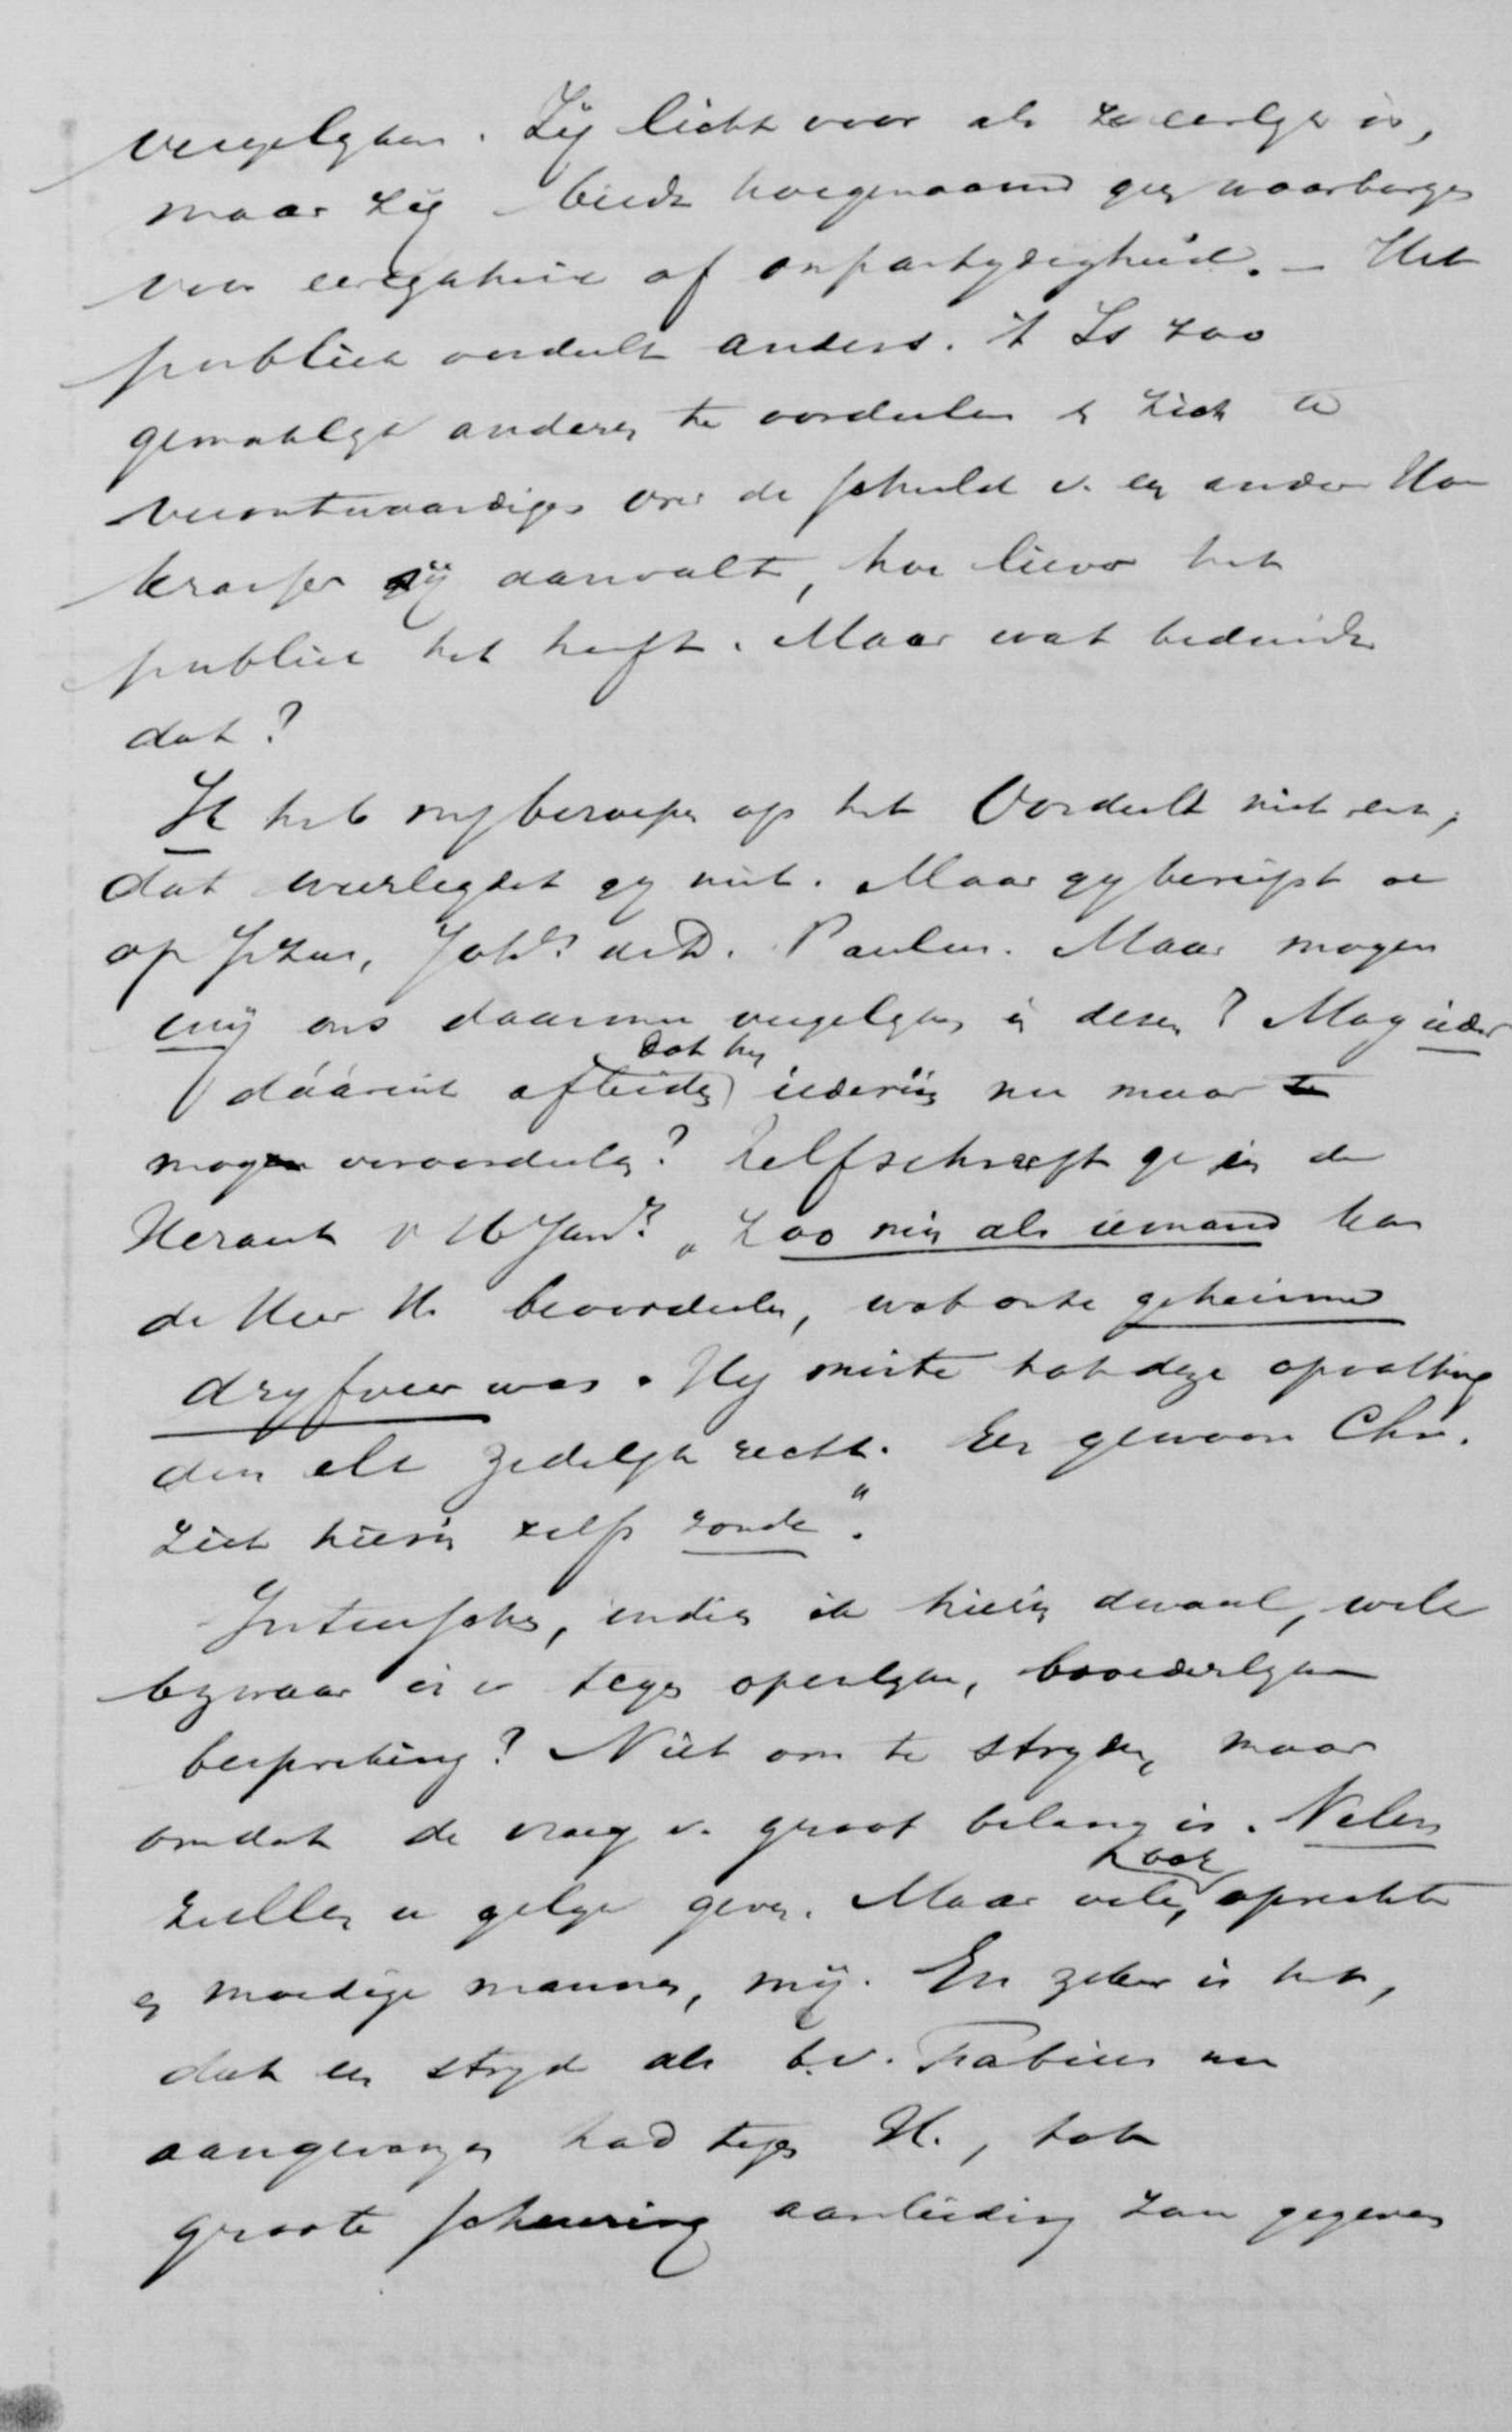 vergelyken. Zij licht voor als ze eerlyk is,
maar zij biedt hoegenaamd geen waarborgen
voor eerlykheid of onpartydigheid. — Het
publiek oordeelt anders. 't Is zoo
gemakkelyk anderen te oordeelen en zich te
verontwaardigen over de schuld v. een ander Hoe
krasser gij aanvalt, hoe liever het
publiek het heeft. Maar wat beduidt
dat?
Ik heb my beroepen op het Oordeelt niet enz,
dat weerlegdet gy niet. Maar gy beriept u
op Jezus, Johs. de D. Paulus. Maar mogen
wij ons daarmee vergelyken in dezen? Mag ieder
dááruit afleiden dat hy iedereen nu maar
mag veroordeelen? Zelf schreeft ge in de
Heraut v 16 Jan. "Zoo min als iemand kan
de Heer H. beoordeelen, wat onze geheime
dryfveer was. Hy miste tot deze opvatting
dan elk zedelyk recht. Een gewoon Chr.
ziet hierin zelfs zonde".
Intusschen, indien ik hierin dwaal, welk
bezwaar is er tegen openlyke, broederlyke
bespreking? Niet om te stryden, maar
omdat de vraag v. groot belang is. Velen
zullen u gelyk geven. Maar velen, ook oprechte
en moedige mannen, mij. En zeker is het,
dat een stryd als b.v. Fabius nu
aangevangen had tegen H., tot
groote scheuring aanleiding zou gegeven